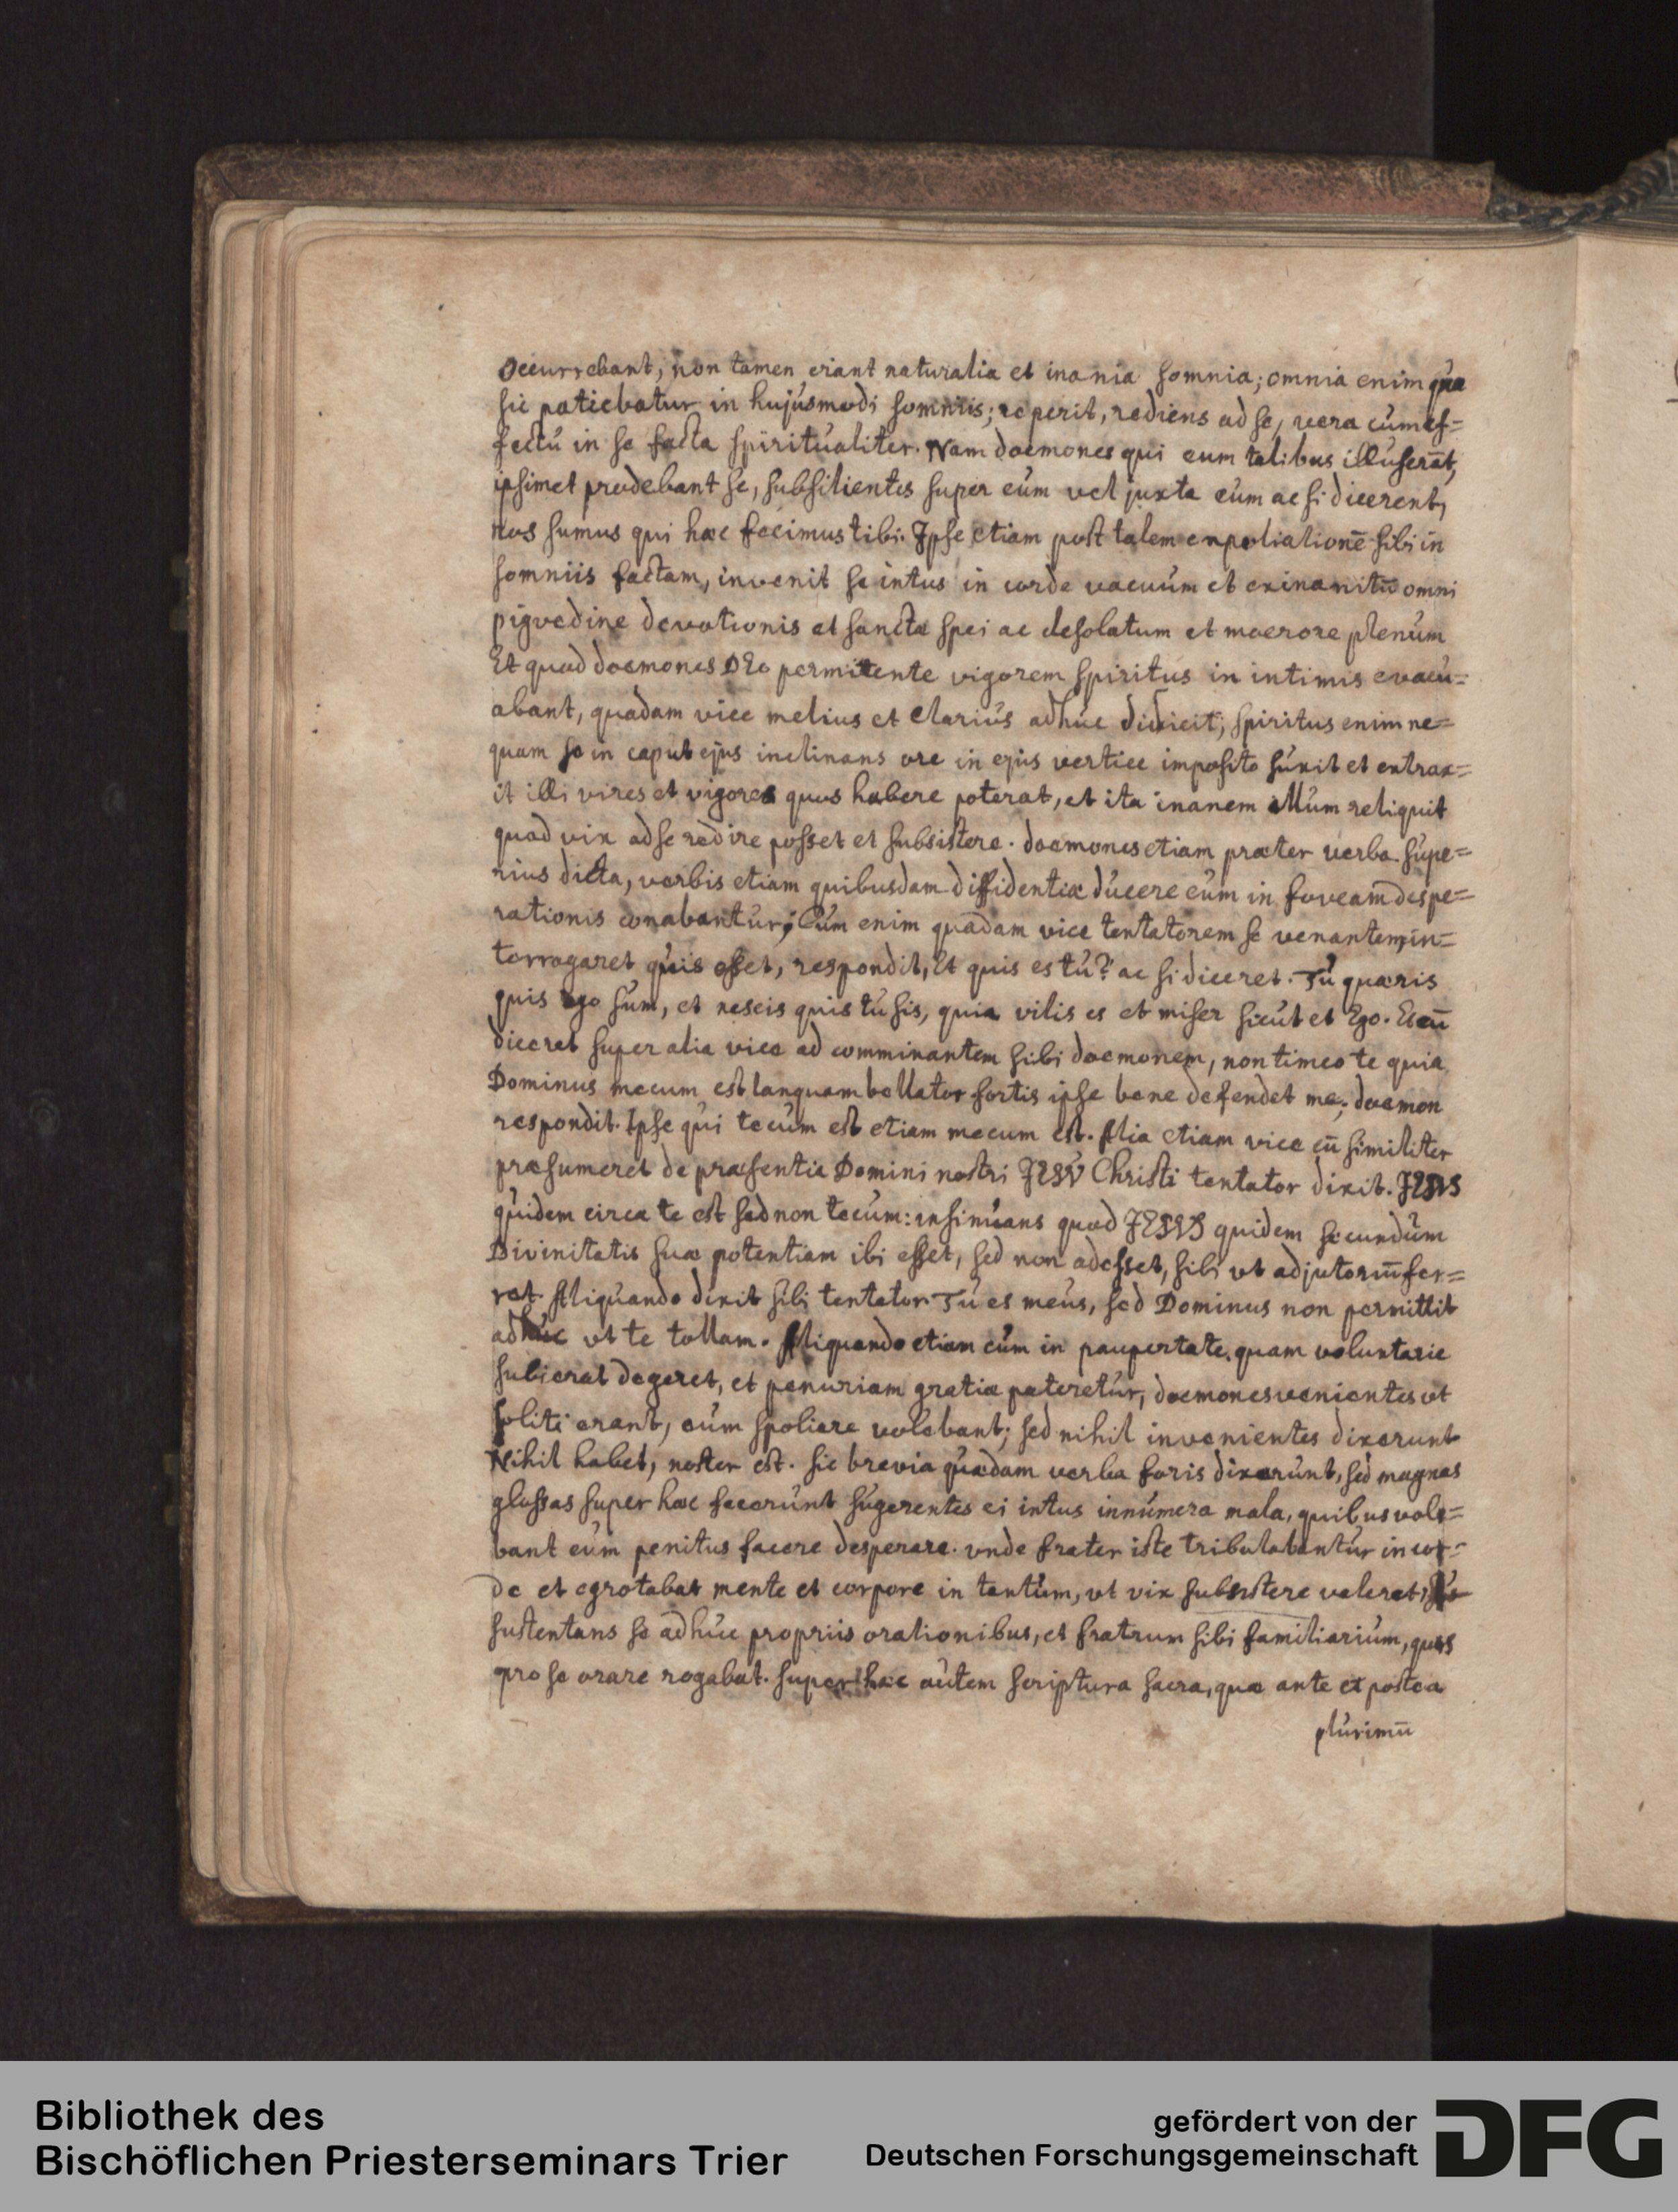 Occurrebant, non tamen erant naturalia et inania somnia; omnia enim quæ
sic patiebatur in hujusmodi somniis; reperit, rediens ad se, vera cum ef=
fectu in se facta spiritualiter. Nam daemones qui eum talibus illuserāt,
ipsimet prodebant se, subsilientes super eum vel juxta eum ac si dicerent,
nos sumus qui hæc fecimus tibi. Ipse etiam post talem expoliationē sibi in
somniis factam, invenit se intus in corde vacuum et exinanitū omni
pigvedine devotionis et sanctæ spei ac desolatum et moerore plenum
Et quod daemones DEo permittente vigorem spiritus in intimis evacu=
abant, quadam vice melius et clarius adhuc didicit; spiritus enim ne=
quam se in caput ejus inclinans ore in ejus vertice imposito suxit et extrax=
it illi vires et vigores quos habere poterat, et ita inanem illum reliquit
quod vix ad se redire posset et subsistere. daemones etiam præter verba supe=
rius dicta, verbis etiam quibusdam diffidentiæ ducere eum in foveam despe=
rationis conabantur; Cum enim quadam vice tentatorem se venantem, in=
terrogaret quis esset, respondit, Et quis es tu? ac si diceret. Tu quæris
quis ego sum, et nescis quis tu sis, quia vilis es et miser sicut et Ego. Et cū
diceret super alia vice ad comminantem sibi daemonem, non timeo te quia
Dominus mecum est tanquam bellator fortis ipse bene defendet me; daemon
respondit. Ipse qui tecum est etiam mecum est. Alia etiam vice cū similiter
præsumeret de præsentia Domini nostri JESV Christi tentator dixit. JESVS
quidem circa te est sed non tecum: insinuans quod JESVS quidem secundum
Divinitatis suæ potentiam ibi esset, sed non adesset, sibi vt adjutoriū fer=
ret. Aliquando dixit sibi tentator Tu es meus, sed Dominus non permittit
adhuc vt te tollam. Aliquando etiam cum in paupertate, quam voluntarie
subierat degeret, et penuriam gratiæ pateretur, daemones venientes vt
soliti erant, eum spoliare volebant; sed nihil invenientes dixerunt
Nihil habet, noster est. sic brevia quædam verba foris dixerunt, sed magnas
glossas super hæc fecerunt sugerentes ei intus innumera mala, quibus vole=
bant eum penitus facere desperare. vnde frater iste tribulabantur in cor=
de et egrotabat mente et corpore in tantum, vt vix subsistere valeret,
sustentans se adhuc propriis orationibus, et fratrum sibi familiarium, quos
pro se orare rogabat. super hæc autem scriptura sacra, quæ ante et postea
plurimū
Bibliothek des
Bischöflichen Priesterseminars Trier
gefördert von der
Deutschen Forschungsgemeinschaft
DFG